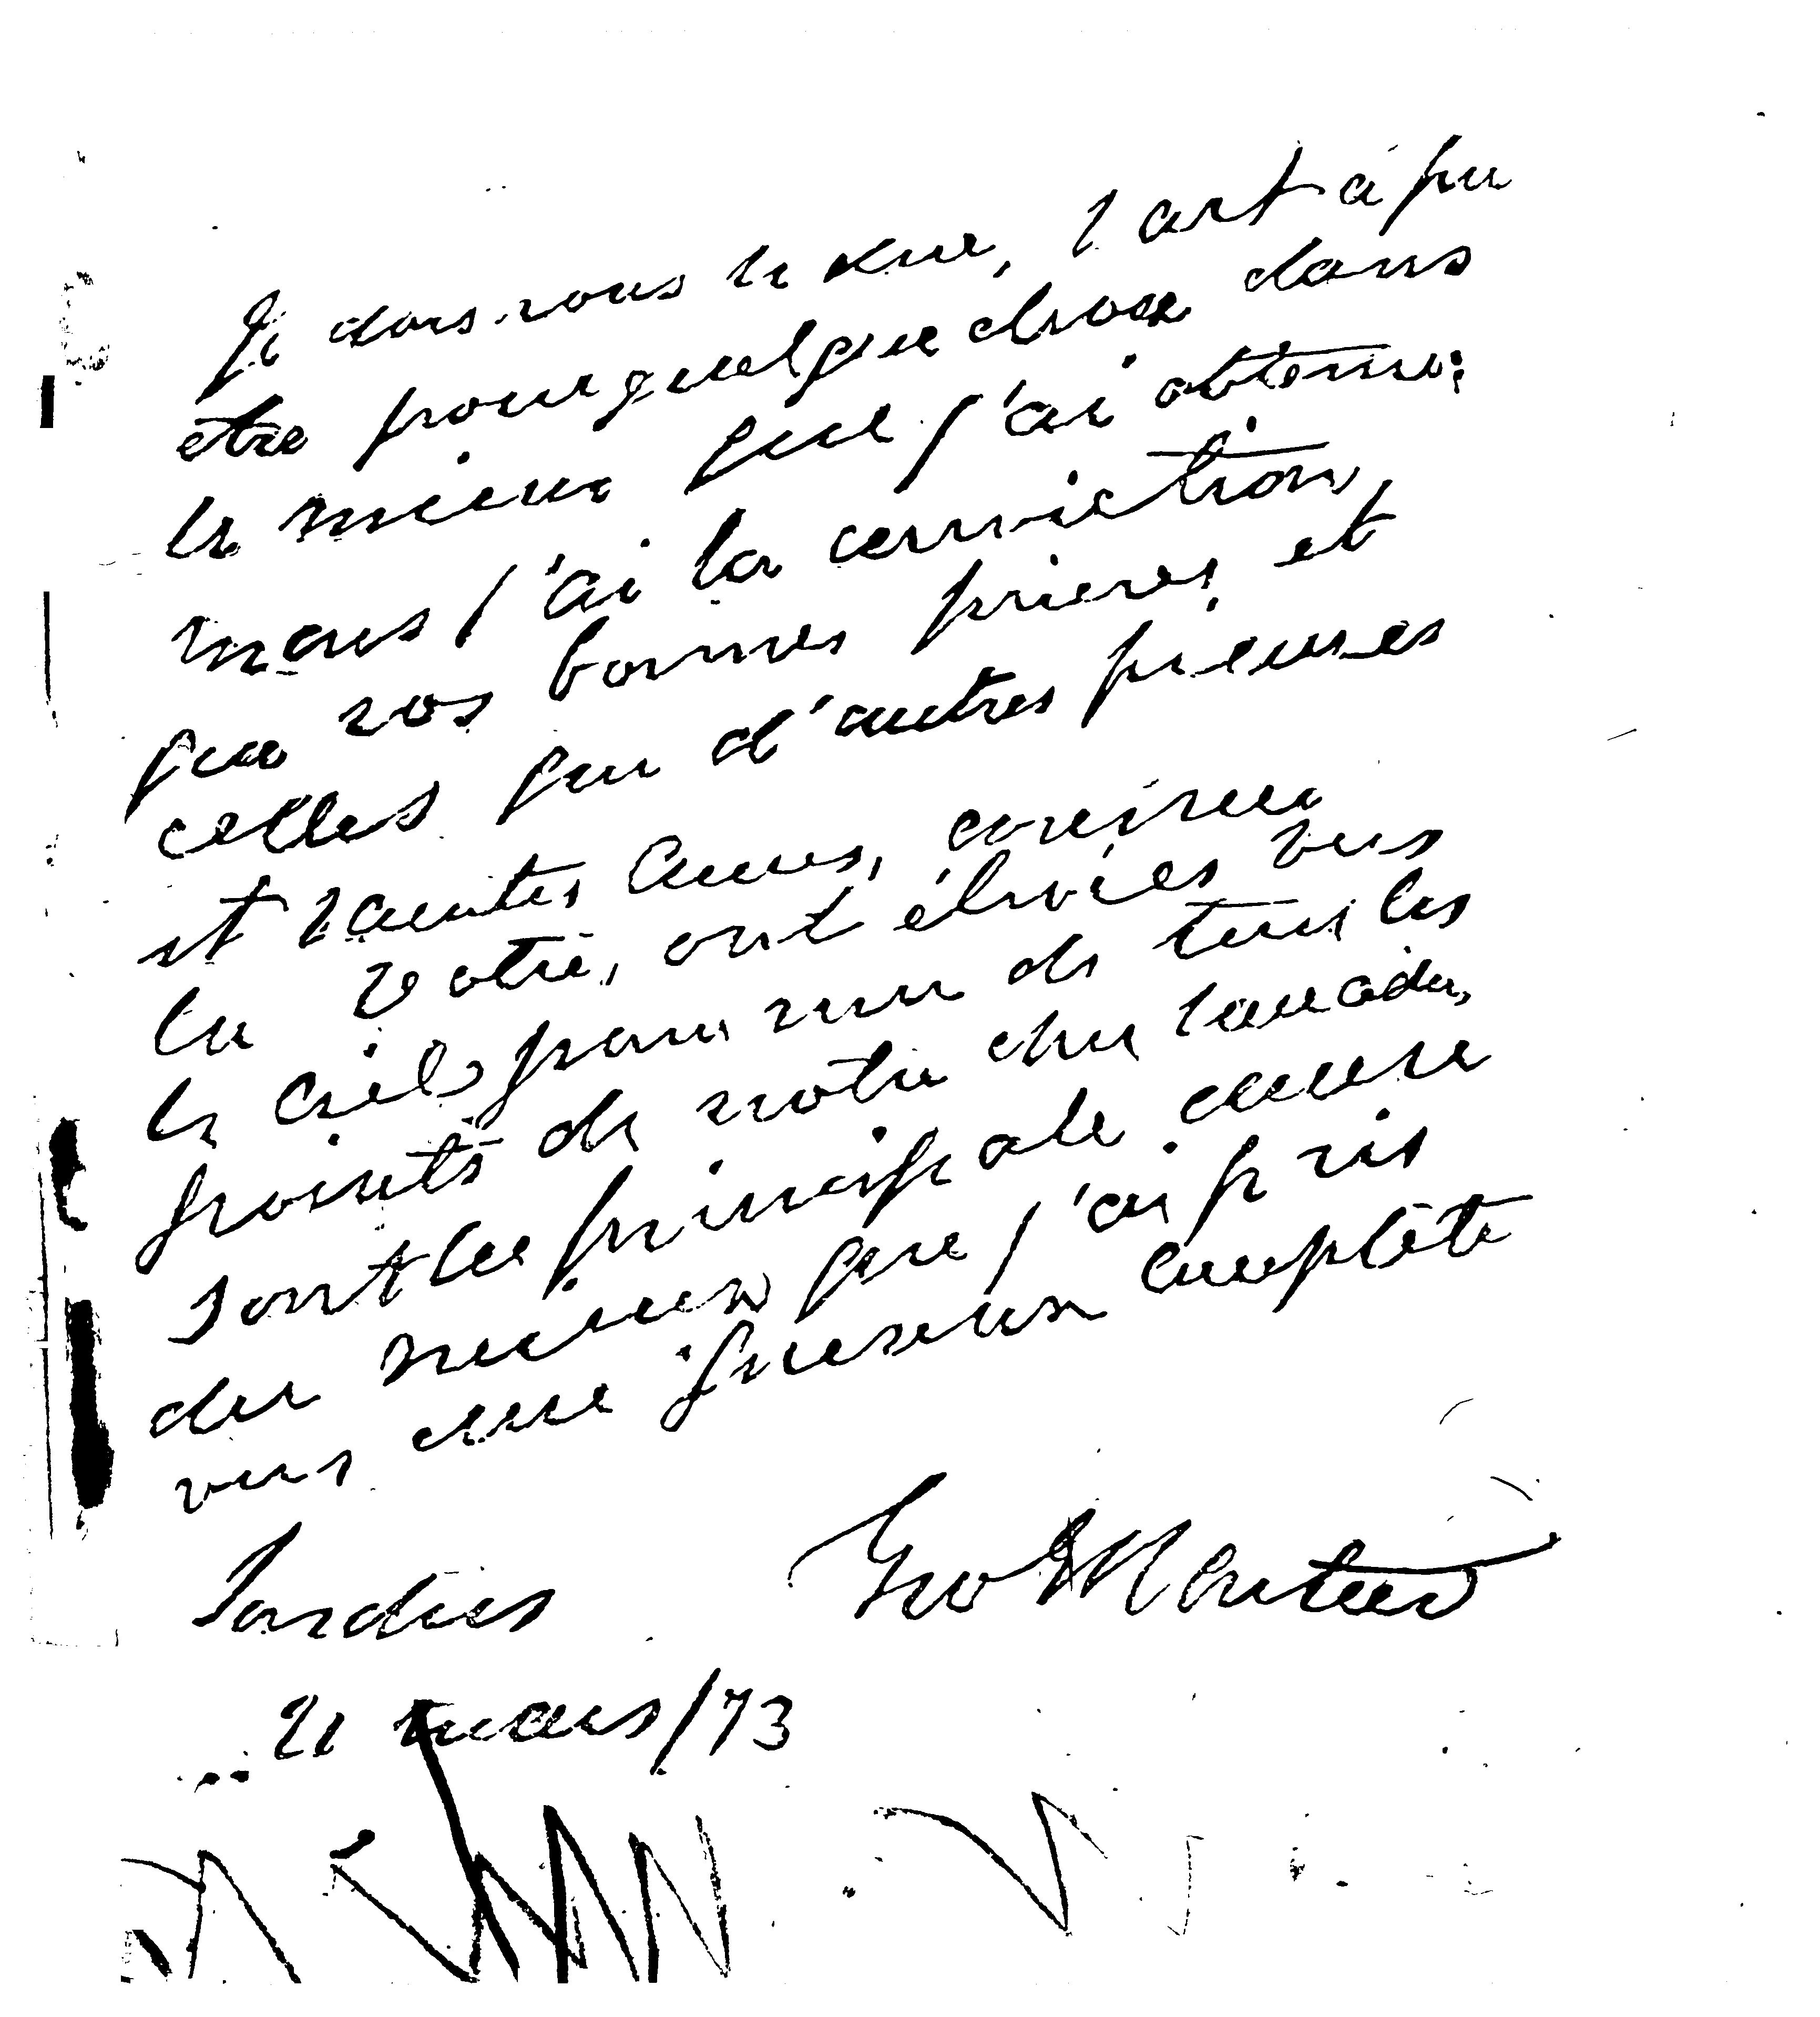 Je dois vous le dire, l'art a pu
etre pour quelque chose dans
le mieux que j'ai obtenu;
mais j'ai la conviction,
que vos bonnes prieres, et
celles que d'autres pieuses
et saintes ames, comme
la votre, ont élevées vers
le Ciel pour moi de tous les
points de notre cher Canada,
sont la principale cause
du mieux que j'ai pris
vers une guerison complète
Londres Geo E Cartier
21 mars/73